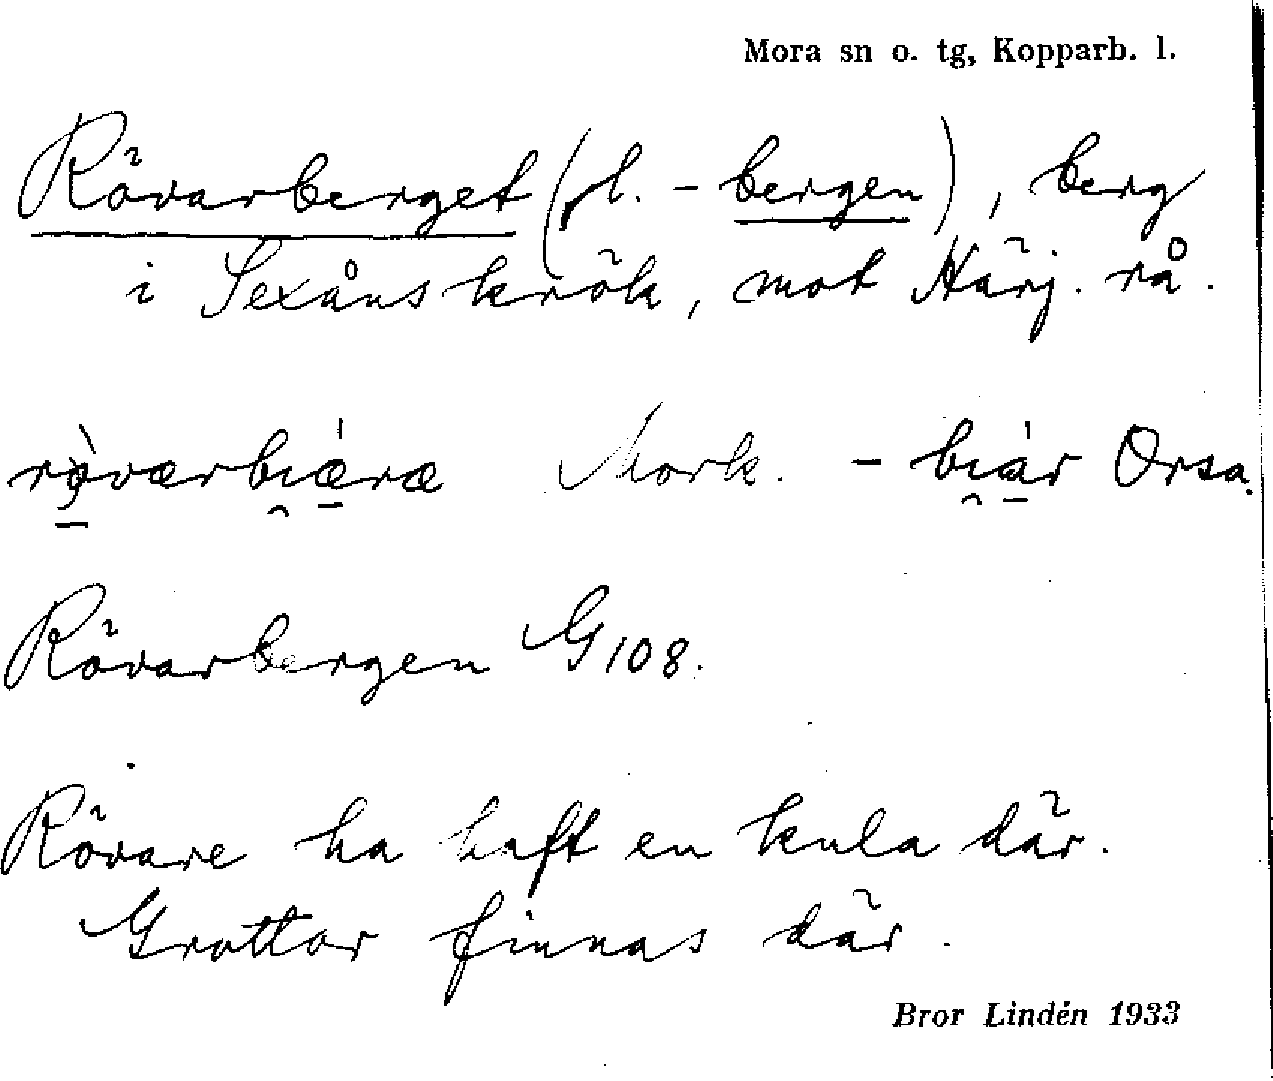 Mora sn o. tg, Kopparb. l.
Rövarberget (pl. -bergen), berg
i Sexåns krök, mot Härj. rå.
rö̀værbiǽræ Mork. -biár Orsa.
Rövarbergen G 108.
Rövare ha haft en kula där.
Grottor finnas där.
Bror Lindén 1933